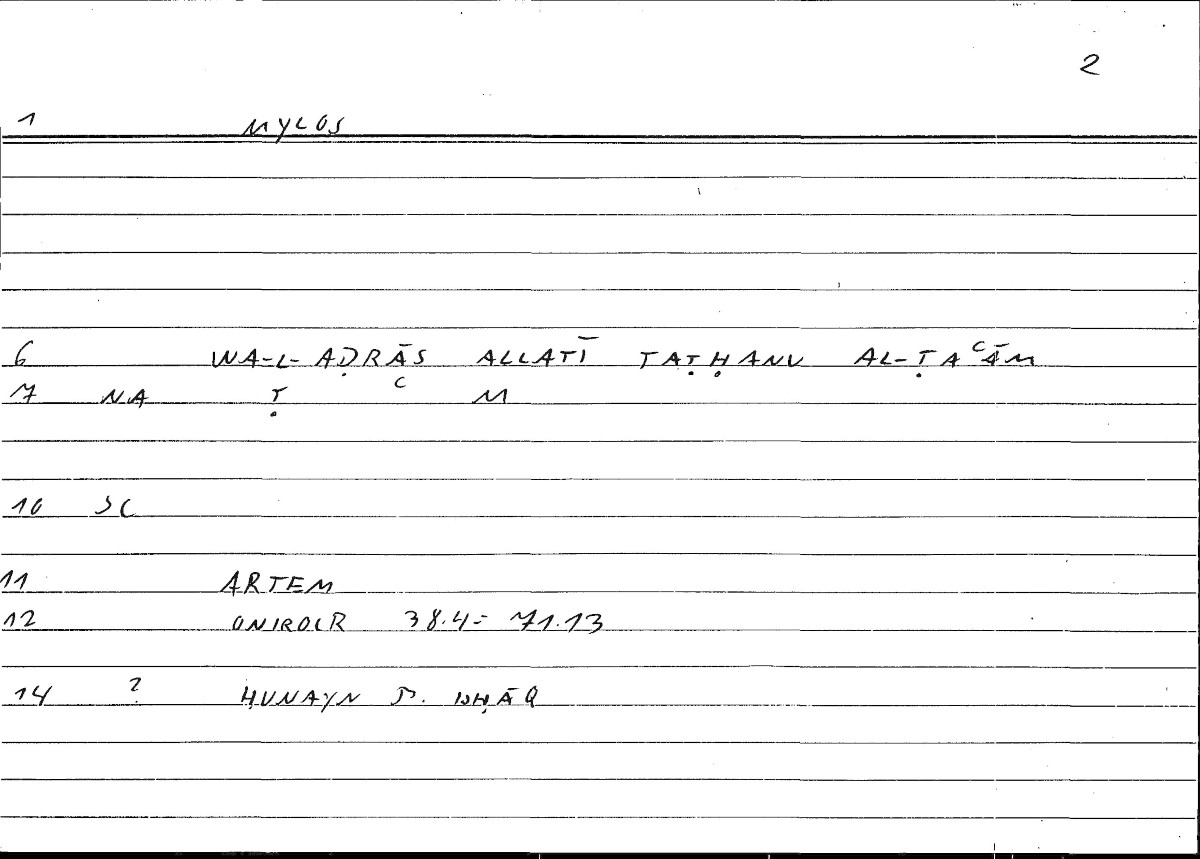 2
1 MYLOS
6 WA-L-AḌRĀS ALLATĪ TAṬḤANU AL-ṬAʿĀM
7 NA Ṭ ʿ M
10 SC
11 ARTEM
12 ONIROCR 38.4 = 71.13
14 2 ḤUNAYN B. ISḤĀQ